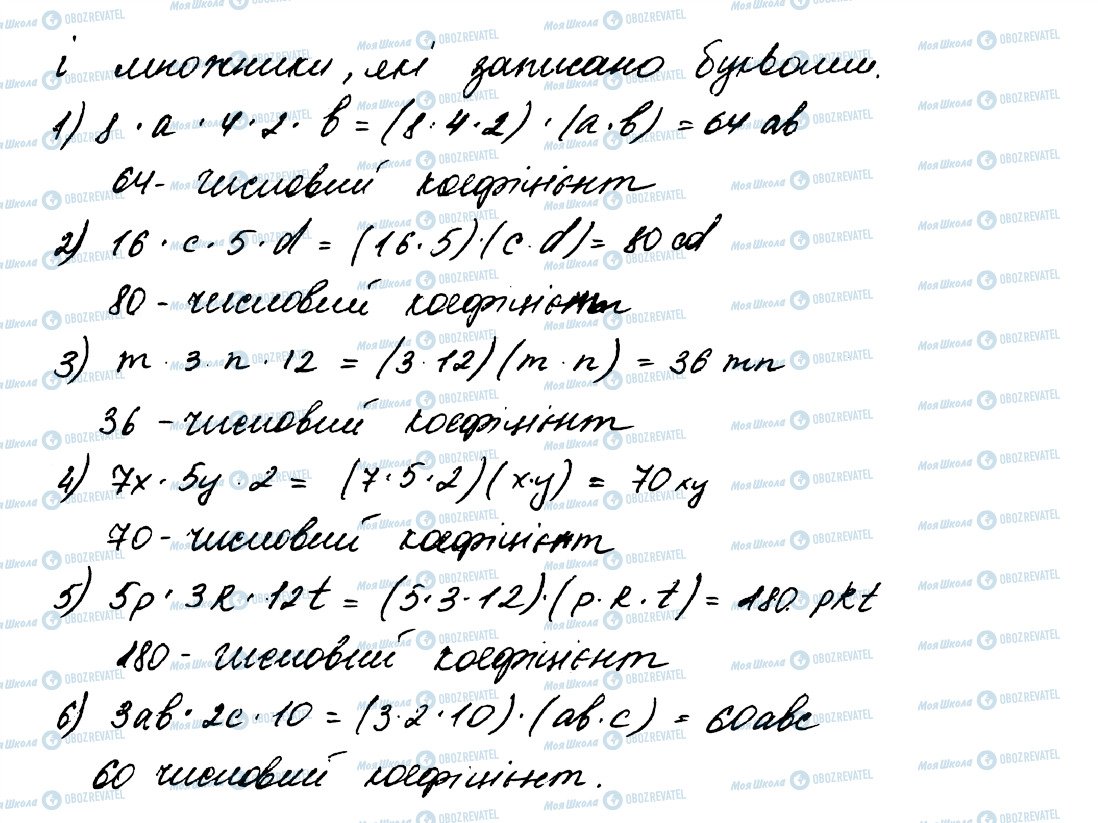 і множники, які записано буквами.
1) 8 · a · 4 · 2 · b = (8 · 4 · 2) · (a · b) = 64 ab
64 - числовий коефіцієнт
2) 16 · c · 5 · d = (16 · 5) · (c · d) = 80 cd
80 - числовий коефіцієнт
3) m · 3 · n · 12 = (3 · 12) (m · n) = 36 mn
36 - числовий коефіцієнт
4) 7x · 5y · 2 = (7 · 5 · 2) (x · y) = 70 xy
70 - числовий коефіцієнт
5) 5p · 3k · 12t = (5 · 3 · 12) · (p · k · t) = 180 pkt
180 - числовий коефіцієнт
6) 3ab · 2c · 10 = (3 · 2 · 10) · (ab · c) = 60abc
60 числовий коефіцієнт.